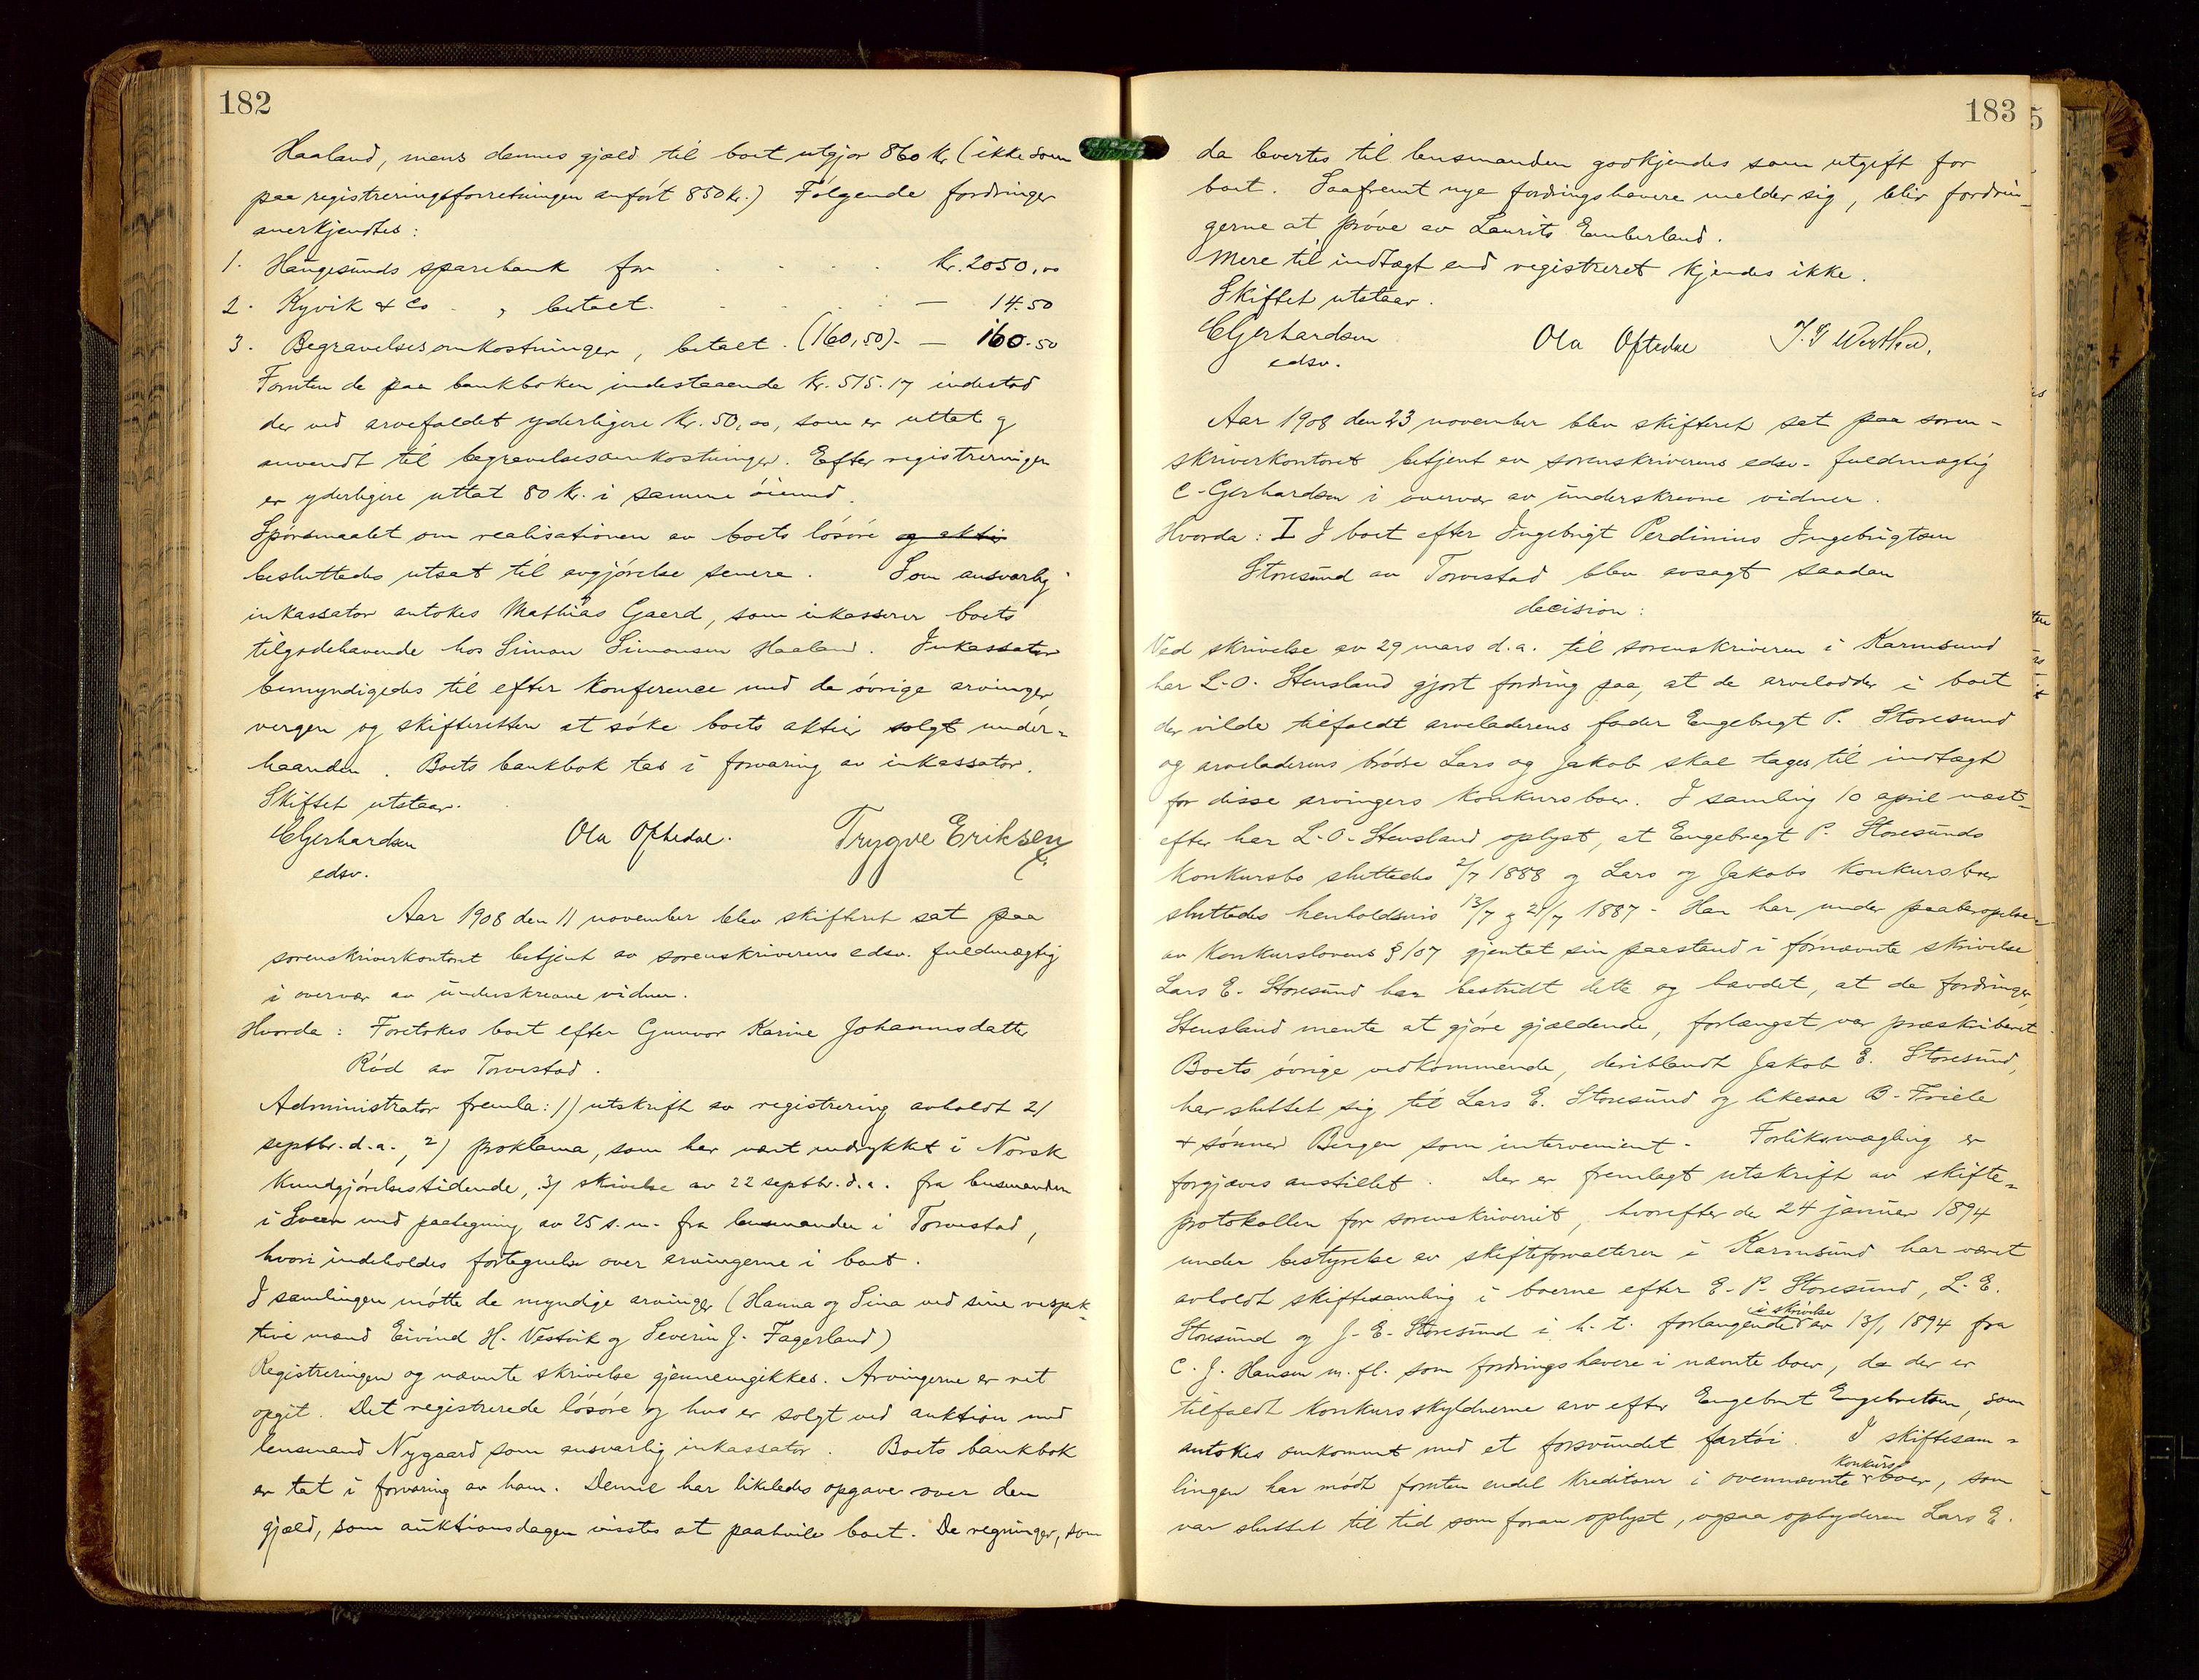 182
Haaland, mens dennes gjæld til boet utgjør 860 kr (ikke som
paa registreringsforretningen anført 850 kr.) Følgende fordringer
anerkjendtes:
1. Haugesunds sparebank for . . . . kr. 2050,00
2. Kyvik & Co. , betalt . . . . — 14.50
3. Begravelsesomkostninger, betalt . (160,50). — 160.50
Foruten de paa bankboken indestaaende kr. 515.17 indestod
der ved arvefaldet yderligere kr. 50,00, som er uttat og
anvendt til begravelsesomkostninger. Efter registreringen
er yderligere uttat 80 kr. i samme øiemed.
Spørsmaalet om realisationen av boets løsøre og aktier
besluttedes utsat til avgjørelse senere. Som ansvarlig
inkassator antokes Mathias Gaerd, som inkasserer boets
tilgodehavende hos Simon Simonsen Haaland. Inkassator
bemyndigedes til efter konference med de øvrige arvinger,
vergen og skifteretten at søke boets aktier solgt under-
haanden. Boets bankbok tas i forvaring av inkassator.
Skiftet utstaar.
CGerhardsen Ola Oftedal. Trygve Eriksen
edsv.
Aar 1908 den 11 november blev skifteret sat paa
sorenskriverkontoret betjent av sorenskriverens edsv. fuldmægtig
i overvær av underskrevne vidner.
Hvorda: Foretokes boet efter Gunvor Karine Johannesdatter
Rød av Torvestad.
Administrator fremla: 1) utskrift av registrering avholdt 21
septbr. d.a., 2) proklama, som har vært indrykket i Norsk
Kundgjørelsestidende, 3) skrivelse av 22 septbr. d.a. fra lensmanden
i Sveen med paategning av 25 s.m. fra lensmanden i Torvestad,
hvori indeholdes fortegnelse over arvingerne i boet.
I samlingen møtte de myndige arvinger (Hanna og Sina ved sine respek-
tive mænd Eivind H. Vestvik og Severin J. Fagerland)
Registreringen og nævnte skrivelse gjennemgikkes. Arvingerne er ret
opgit. Det registrerede løsøre og hus er solgt ved auktion med
lensmand Nygaard som ansvarlig inkassator. Boets bankbok
er tat i forvaring av ham. Denne har likeledes opgave over den
gjæld, som auktionsdagen visstes at paahvile boet. De regninger, som
183
da levertes til lensmanden godkjendes som utgift for
boet. Saafremt nye fordringshavere melder sig, blir fordrin-
gerne at prøve av Laurits Emberland.
Mere til indtægt end registreret kjendes ikke.
Skiftet utstaar.
CGerhardsen Ola Oftedal
edsv.
Aar 1908 den 23 november blev skifteret sat paa soren-
skriverkontoret betjent av sorenskriverens edsv. fuldmægtig
C. Gerhardsen i overvær av underskrevne vidner.
Hvorda: I I boet efter Ingebrigt Perdinius Ingebrigtsen
Storesund av Torvestad blev avsagt saadan
decision:
Ved skrivelse av 29 mars d.a. til sorenskriveren i Karmsund
har L.O. Stensland gjort fordring paa, at de arvelodder i boet
der vilde tilfaldt arveladerens fader Engebrigt P. Storesund
og arveladerens brødre Lars og Jakob skal tages til indtægt
for disse arvingers konkursboer. I samling 10 april næst-
efter har L.O. Stensland oplyst, at Engebregt P. Storesunds
konkursbo sluttedes 2/7 1888 og Lars og Jakobs konkursboer
sluttedes henholdsvis 13/7 og 21/7 1887. Han har under paaberopelse
av konkurslovens § 107 gjentat sin paastand i førnævnte skrivelse
Lars E. Storesund har bestridt dette og hævdet, at de fordringer,
Stensland mente at gjøre gjældende, forlængst var præskriberet.
Boets øvrige vedkommende, deriblandt Jakob E. Storesund,
har sluttet sig til Lars E. Storesund og likesaa B. Friele
& sønner Bergen som intervenient. Forliksmægling er
forgjæves anstillet. Der er fremlagt utskrift av skifte-
protokollen for sorenskriveriet, hvorefter der 24 januar 1894
under bestyrelse av skifteforvalteren i Karmsund har været
avholdt skiftesamling i boerne efter E. P. Storesund, L. E.
Storesund og J. E. Storesund i h. t. forlangende i skrivelse av 13/1 1894 fra
C. J. Hansen m. fl. som fordringshavere i nævnte boer, da der er
tilfaldt konkursskyldnerne arv efter Engebret Engebretsen, som
antokes omkommet med et forsvundet fartøi. I skiftesam-
lingen har mødt foruten endel kreditorer i ovennævnte konkursboer, som
var sluttet til tid som foran oplyst, ogsaa opbyderen Lars E.